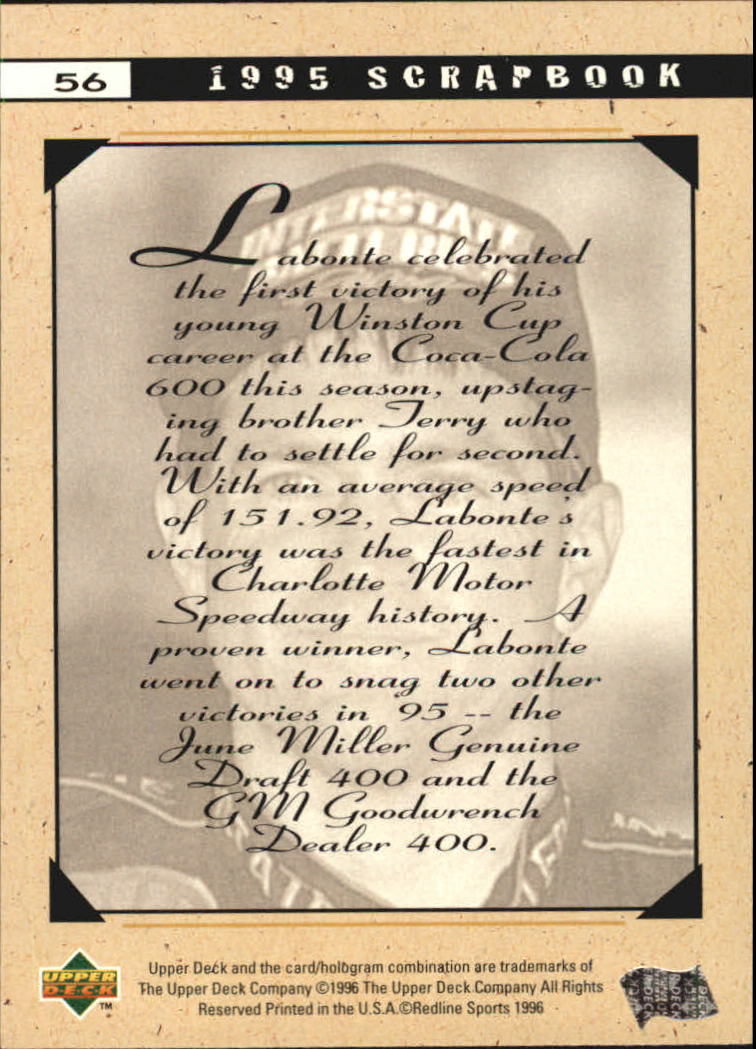 56
1995 SCRAPBOOK
INTERSTATE
Labonte celebrated
the first victory of his
young Winston Cup
career at the Coca-Cola
600 this season, upstag-
ing brother Terry who
had to settle for second.
With an average speed
of 151.92, Labonte's
victory was the fastest in
Charlotte Motor
Speedway history. A
proven winner, Labonte
went on to snag two other
victories in '95 -- the
June Miller Genuine
Draft 400 and the
GM Goodwrench
Dealer 400.
UPPER
DECK
TM
Upper Deck and the card/hologram combination are trademarks of
The Upper Deck Company ©1996 The Upper Deck Company All Rights
Reserved Printed in the U.S.A.©Redline Sports 1996